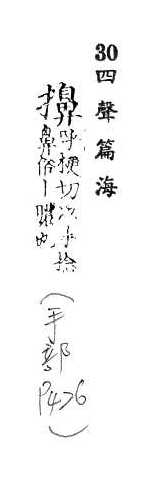 30 四聲篇海
擤 呼梗切以手捻
鼻俗丨膿也
(手部
P426)